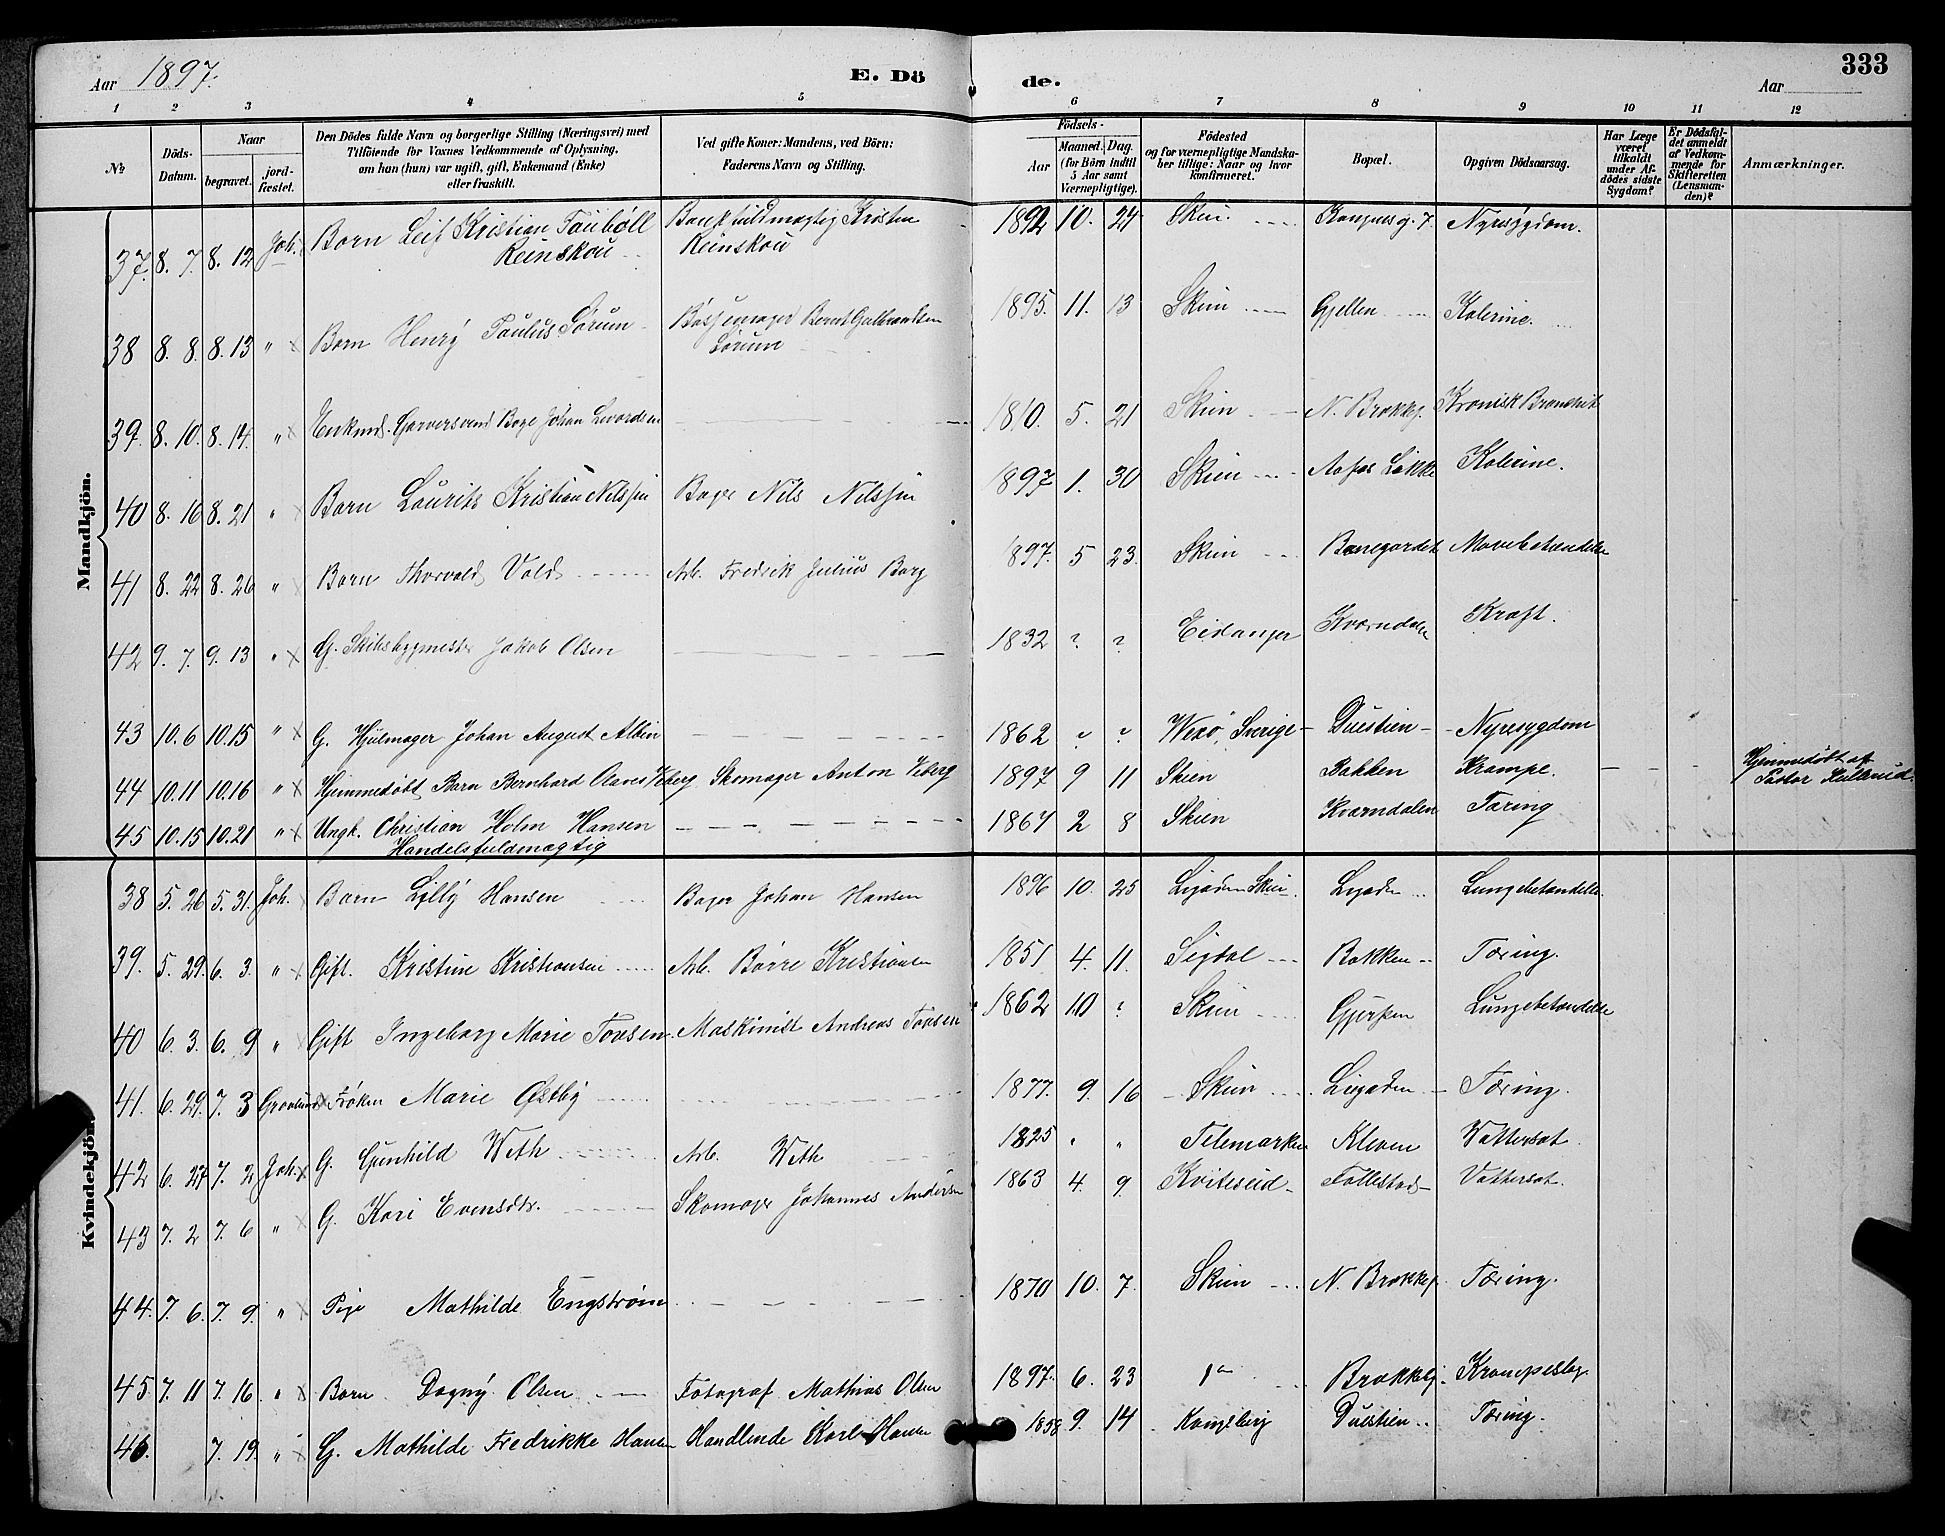 Aar 1897. E. Dö de. Aar 333
1 2 3 4 5 6 7 8 9 10 11 12
№
Döds-Datum.
Naar
begravet.
jord-fæstet.
Den Dödes fulde Navn og borgerlige Stilling (Næringsvei) med
Tilföiende for Voxnes Vedkommende af Oplysning,
om han (hun) var ugift, gift, Enkemand (Enke)
eller fraskilt.
Ved gifte Koner: Mandens, ved Börn:
Faderens Navn og Stilling.
Födsels-
Aar
Maaned. Dag.
(for Börn indtil
5 Aar samt
Værnepligtige).
Födested
og for værnepligtige Mandska-
ber tillige: Naar og hvor
konfirmeret.
Bopæl.
Opgiven Dödsaarsag.
Har Læge
været
tilkaldt
under Af-
dödes sidste
Sygdom?
Er Dödsfal-
det anmeldt
af Vedkom-
mende for
Skifteretten
(Lensman-
den)?
Anmærkninger.
Mandkjön.
37. 8. 7. 8. 12 Joh. Barn Leif Kristian Reinskou Bankfuldmægtig Kristen Reinskou 1892 10. 24 Skien. Nyresygdom.
38 8. 8. 8. 13 " x Barn Henry Paulus Sørum Bøssemager Bernt Gulbrandsen Sørum 1895. 11. 13 Skien Gjellen Kolerine.
39. 8. 10. 8. 14. " x Enkmd. Garversvend Boye Johan 1810. 5. 21 Skien N. Brækkeg. Kronisk Bronchit
40 8. 16 8. 21 " x Barn Laurits Kristian Nilssen Bager Nils Nilssen 1897 1. 30 Skien Løkke Kolerine.
41 8. 22 8. 26 " x Barn Thorvald Vold Arb. Fredrik Julius Borg 1897. 5 23. Skien Banegardet Mavebetændelse
42 9. 7. 9. 13 " x G. Skibsbygmester Jakob Olsen 1832 ? ? Eidanger Kværndalen Kræft.
43 10. 6 10. 15 " x G. Hjulmager Johan August Albin 1862 ? ? Wexø, Sverige Duestien Nyresygdom
44 10. 11 10. 16 " x Hjemmedøbt Barn Bernhard Olaves Viberg Skomager Anton Viberg 1897 9 11 Skien Bakken Krampe. Hjemmedøbt af Pastor
45 10. 15 10. 21 " x Ungk. Christian Holm Hansen Handelsfuldmægtig 1867 2 8 Skien Kværndalen Tæring
Kvindekjön.
38 5. 26 5. 31. Joh. Barn Lylly Hansen Bager Johan Hansen 1896 10. 25 Ligaden Skien Ligaden Lungebetændelse.
39. 5. 29. 6. 3. " x Gift. Kristine Kristiansen Arb. Børre Kristiansen 1851 4. 11. Sigdal Bakken Tæring.
40 6. 3. 6. 9 " Gift Ingeborg Marie Maskinist Andreas 1862 10 ? Skien Gjerpen Lungebetændelse
41. 6. 29. 7. 3 Frøken Marie Østby 1877. 9. 16 Skien Ligaden Tæring.
42 6. 27 7. 2 Joh. x G. Gunhild Weth Arb. Weth 1825 " " Telemarken Kleven Vattersot
43 7. 2 7. 6 " G. Kari Evensdtr. Skomager Johannes Andersen 1863 4. 9. Kviteseid Follestad Vattersot.
44. 7. 6. 7. 9. " x Pige Mathilde Engstrøm 1870 10. 7. Skien N. Brækkeg. Tæring.
45. 7. 11 7. 16 " x Barn Dagny Olsen Fotograf Mathias Olsen 1897. 6. 23 Brækkeg. Krampeslag
46. 7. 19. " x G. Mathilde Fredrikke Hansen Handlende Karl Hansen 1858 9. 14 Kongsberg Duestien Tæring.